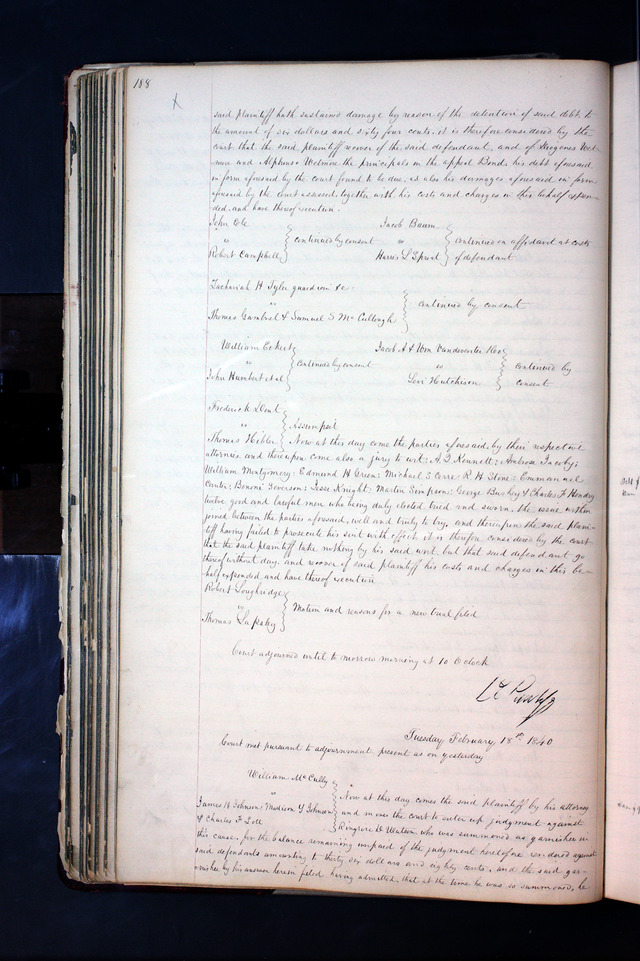 188
X
said plaintiff hath sustained damage by reason of the detention of said debt to
the amount of six dollars and sixty four cents. it is therefore considered by the
court that the said plaintiff recover of the said defendant, and of
and Alphonso Wetmore the principals in the appeal Bond, his debt aforesaid
in form aforesaid by the court found to be due, as also his damages aforesaid in form
aforesaid by the court assessed together with his costs and charges in this behalf expen-
ded, and have thereof execution.
John Ole
vs continued by consent
Robert Campbell
Jacob Baum
vs continued on affidavit at costs
Harris L Sproat of defendant
Zachariah H Tyler guardian &c
vs continued by consent
Thomas Gambrel & Samuel S McCullough
William Eckert
vs continued by consent
John Humbert et al
Jacob A & Wm Vandeventer
vs continued by
Levi Hutchison consent
Frederick Dent
vs Assumpsit
Thomas Hibler Now at this day come the parties aforesaid, by their respective
attornies and thereupon come also a jury to wit: A D Kennett; Ambrose Jacoby;
William Montgomery; Edmund H Green; Michael S Cerre; R H Stone; Emmanuel
Canter; Benoni Severson; Jesse Knight; Martin Simpson; George Buskey & Charles F Hendry
twelve good and lawful men, who being duly elected tried and sworn, the issue within
joined between the parties aforesaid, well and truly to try, and thereupon the said plain-
tiff having failed to prosecute his suit with effect it is therefore considered by the court
that the said plaintiff take nothing by his said writ, but that said defendant go
thereof without day, and recover of said plaintiff his costs and charges in this be-
half expended and have thereof execution
Robert Loughridge
vs Motion and reasons for a new trial filed
Thomas Lapsley
Court adjourned until to morrow morning at 10 O'clock
Tuesday February 18th 1840
Court met pursuant to adjournment present as on yesterday
William McCully
vs
James H Johnson Madison Y Johnson
& Charles F Lott
Now at this day comes the said plaintiff by his attorney
and moves the court to enter up judgment against
who was summoned as garnishee in
this cause, for the balance remaining unpaid of the judgment heretofore rendered against
said defendants amounting to thirty six dollars and eighty cents, and the said gar-
nishee by his answer herein filed having admitted, that at the time he was so summoned, he